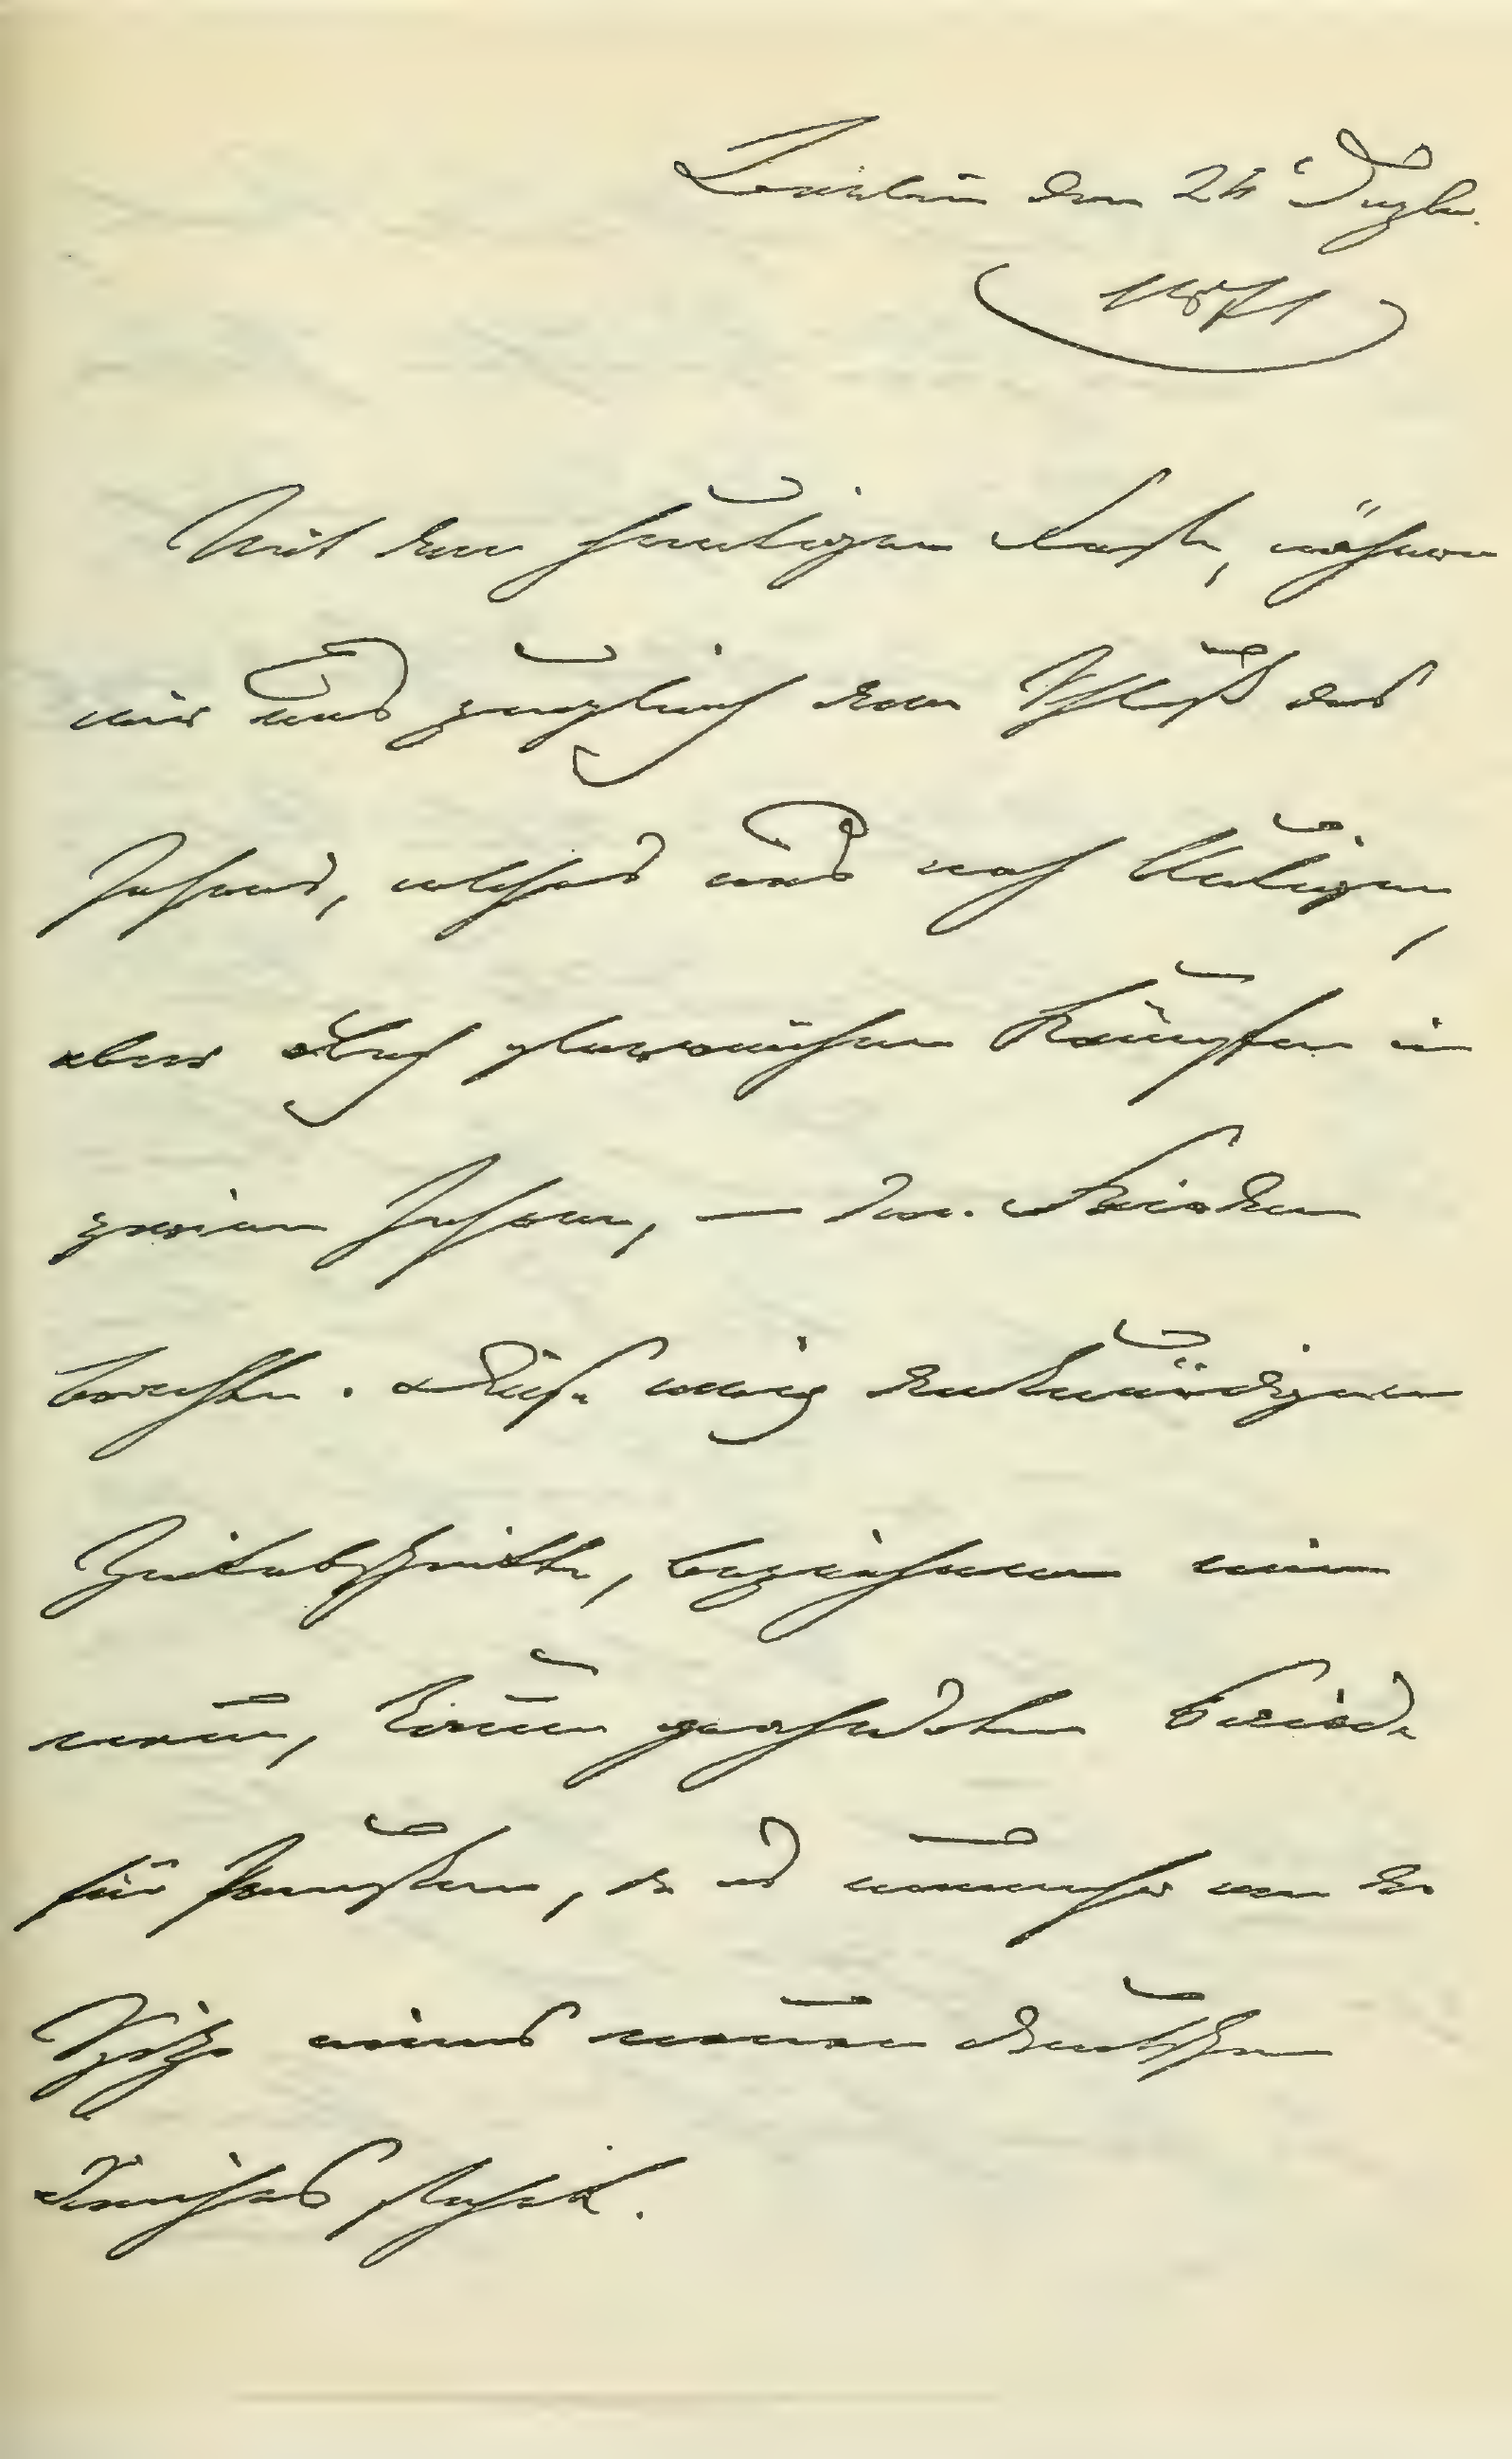 Berlin den 24 Dezbr.
1871
Mit dem heutigen Feste, nähern
wir uns zugleich dem Schluß des
Jahres, welches uns nach blutigen,
aber auch glorreichen Kämpfen in
zweien Jahren, — den Frieden
brachte. Diese ewig denkwürdigen
Zeitabschnitte, bezeichnen eine
neue, kaum geahndete Periode
für Preußen, da es nunmehr an der
Spitze eines neuen deutschen
Reiches steht.